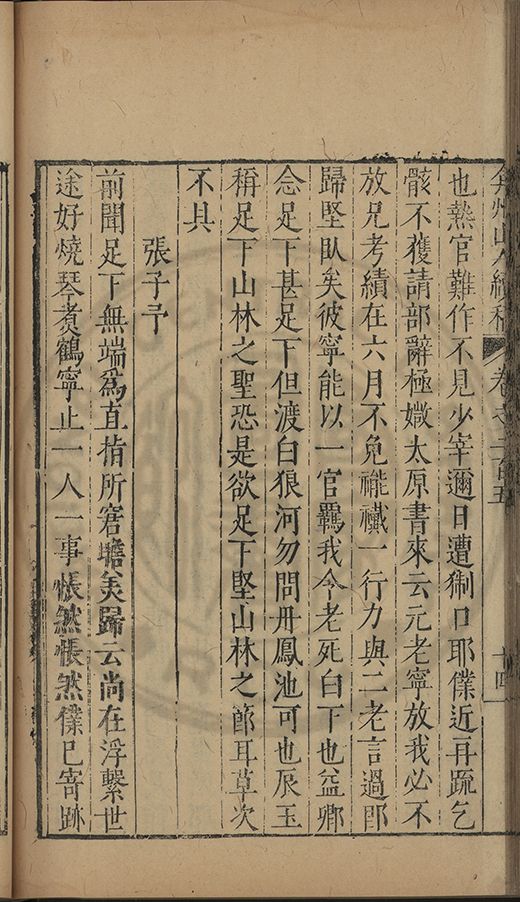 弇州山人續稿 卷之二百五 十四
也熱官難作不見少宰邇日遭猘口耶僕近再疏乞
骸不獲請部辭極媺太原書來云元老寧放我必不
放兄考績在六月不免襶一行力與二老言過即
歸堅臥矣彼寧能以一官羈我今老死白下也益卿
念足下甚足下但渡白狼河勿問丹鳳池可也辰玉
稱足下山林之聖恐是欲足下堅山林之節耳草次
不具
張子予
前聞足下無端為直指所窘矣歸云尚在浮繫世
途好燒琴煑鶴寧止一人一事悵然悵然僕已寄跡